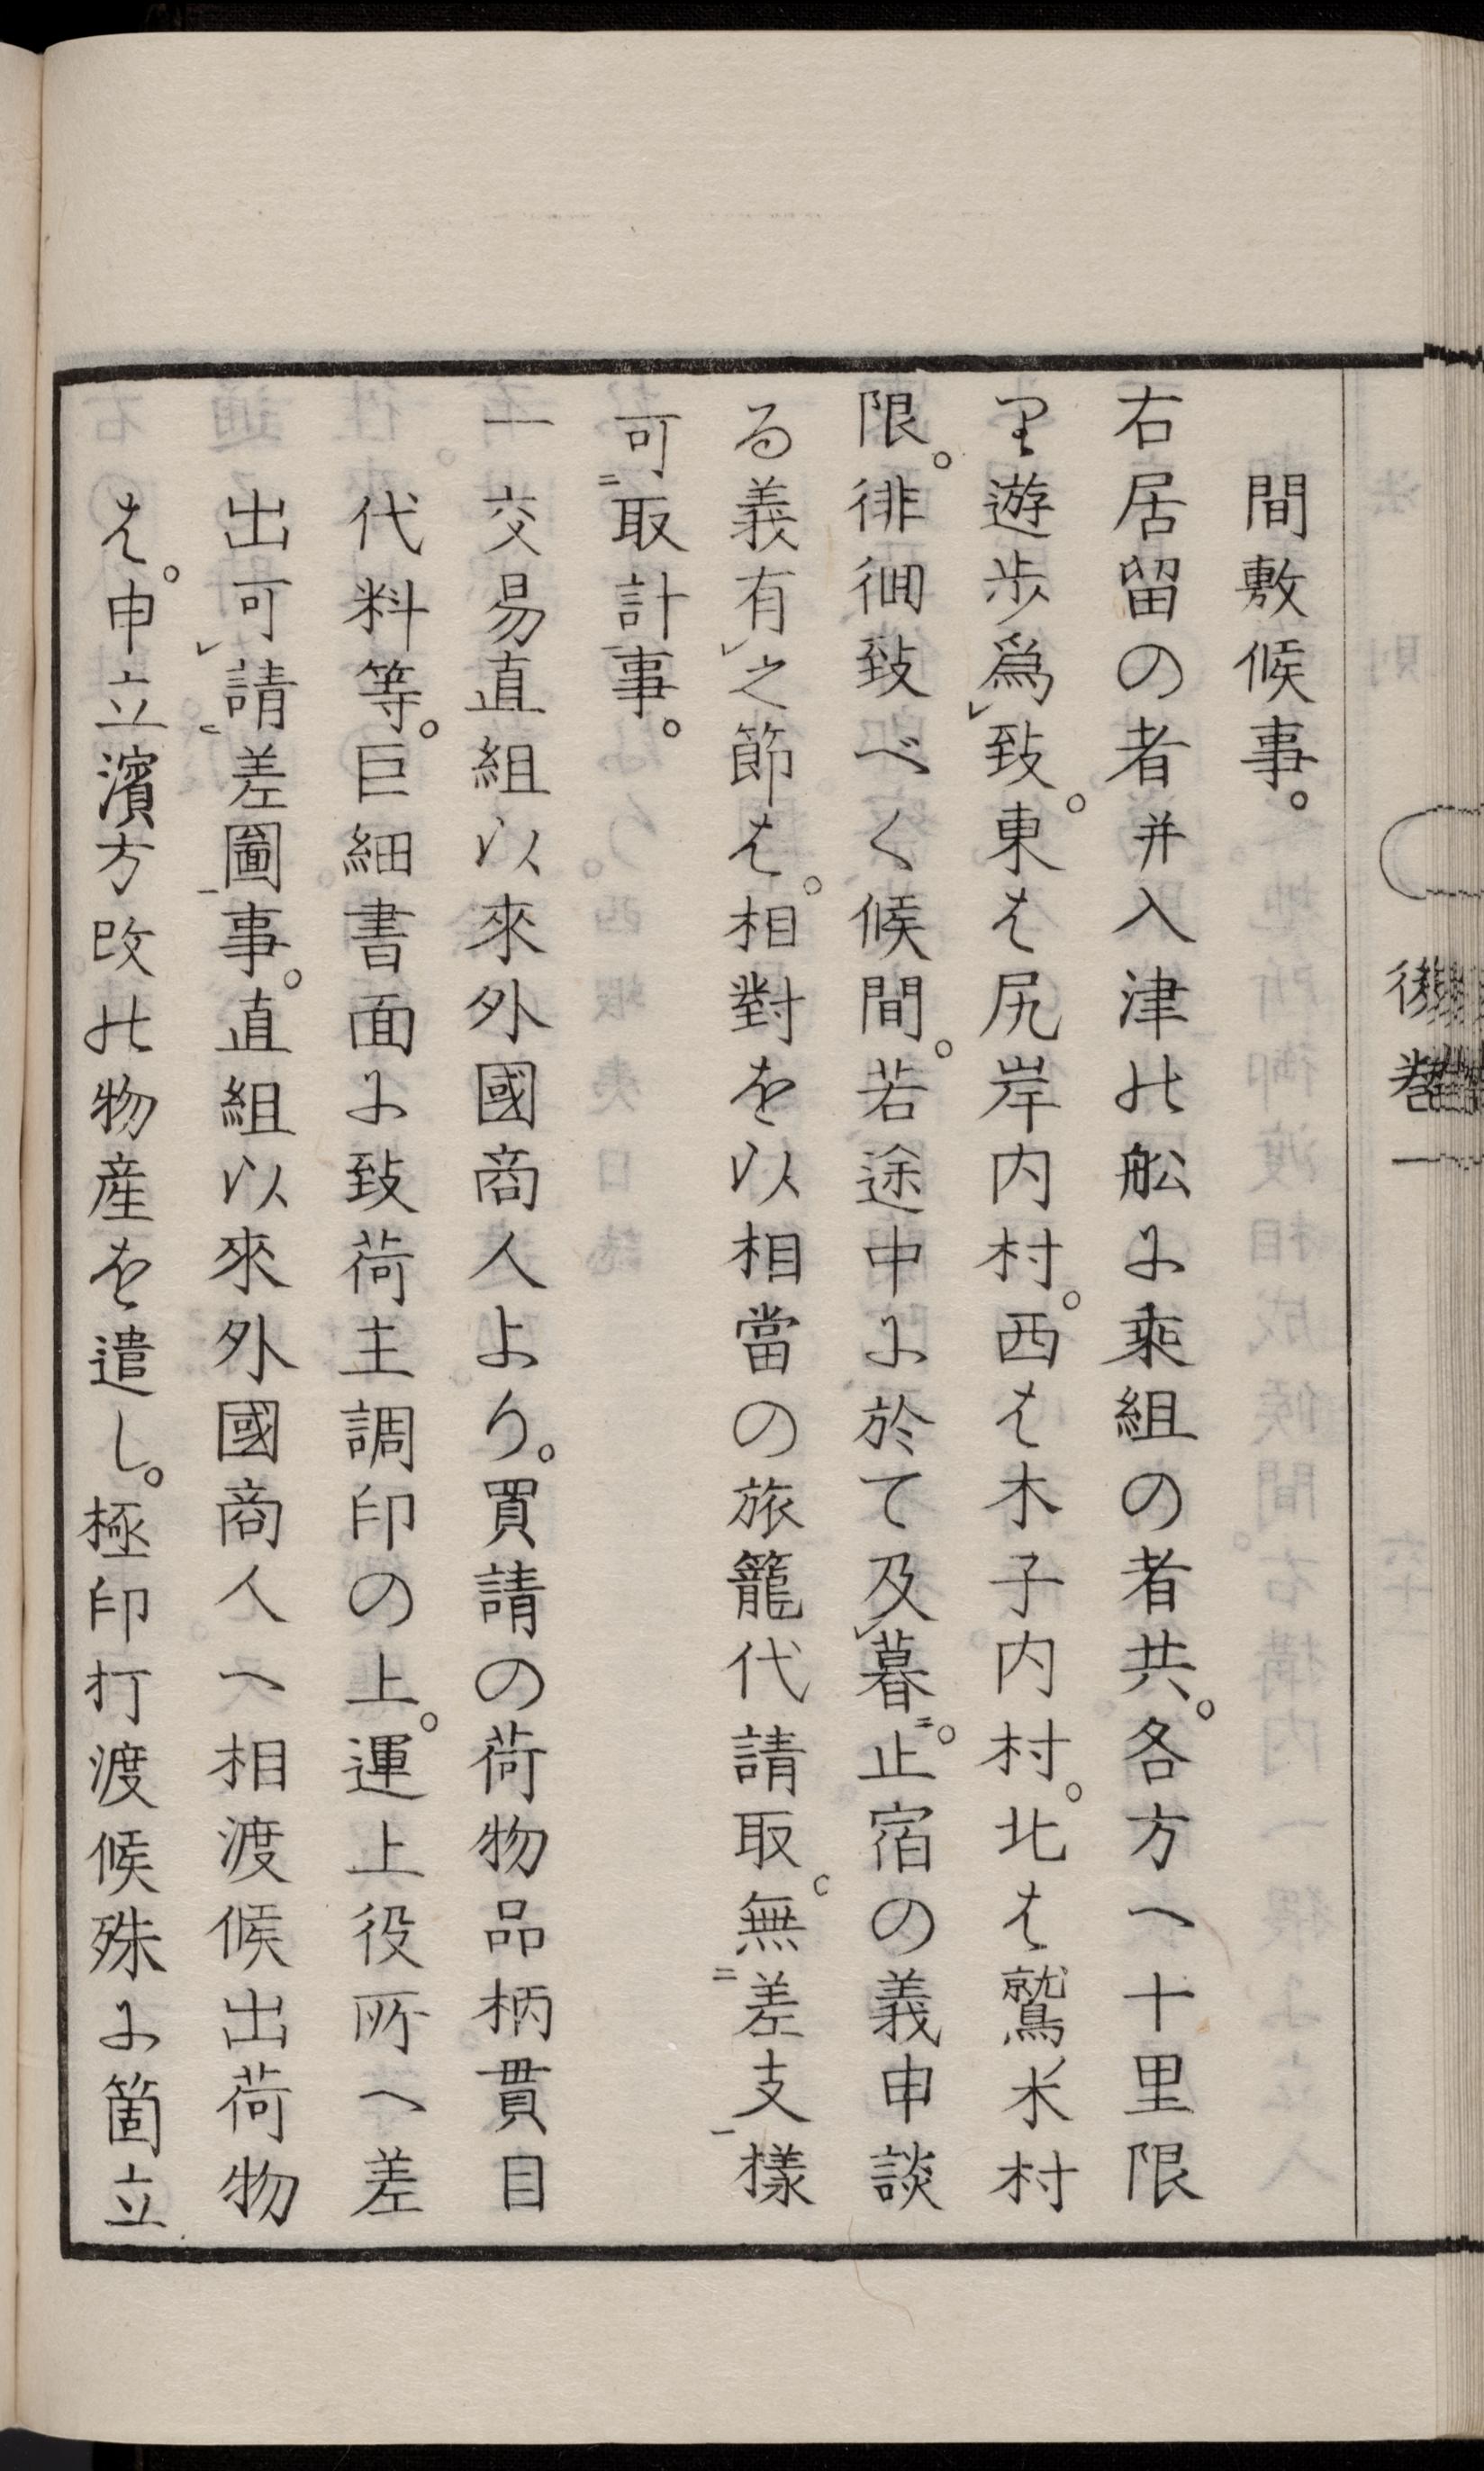 間敷候事。
右居留の者并入津の舩に乘組の者共。各方へ十里限
り遊歩爲致。東は尻岸内村。西は木子内村。北は鷲木村
限。徘徊致べく候間。若途中に於て及暮。止宿の義申談
る義有之節は。相對を以相當の旅籠代請取。無差支樣
可取計事。
一交易直組以來外國商人より。買請の荷物品柄貫目
代料等。巨細書面に致荷主調印の上。運上役所へ差
出可請差圖事。直組以來外國商人へ相渡候出荷物
は。申立濱方改の物産を遣し。極印打渡候殊に箇立
後巻一